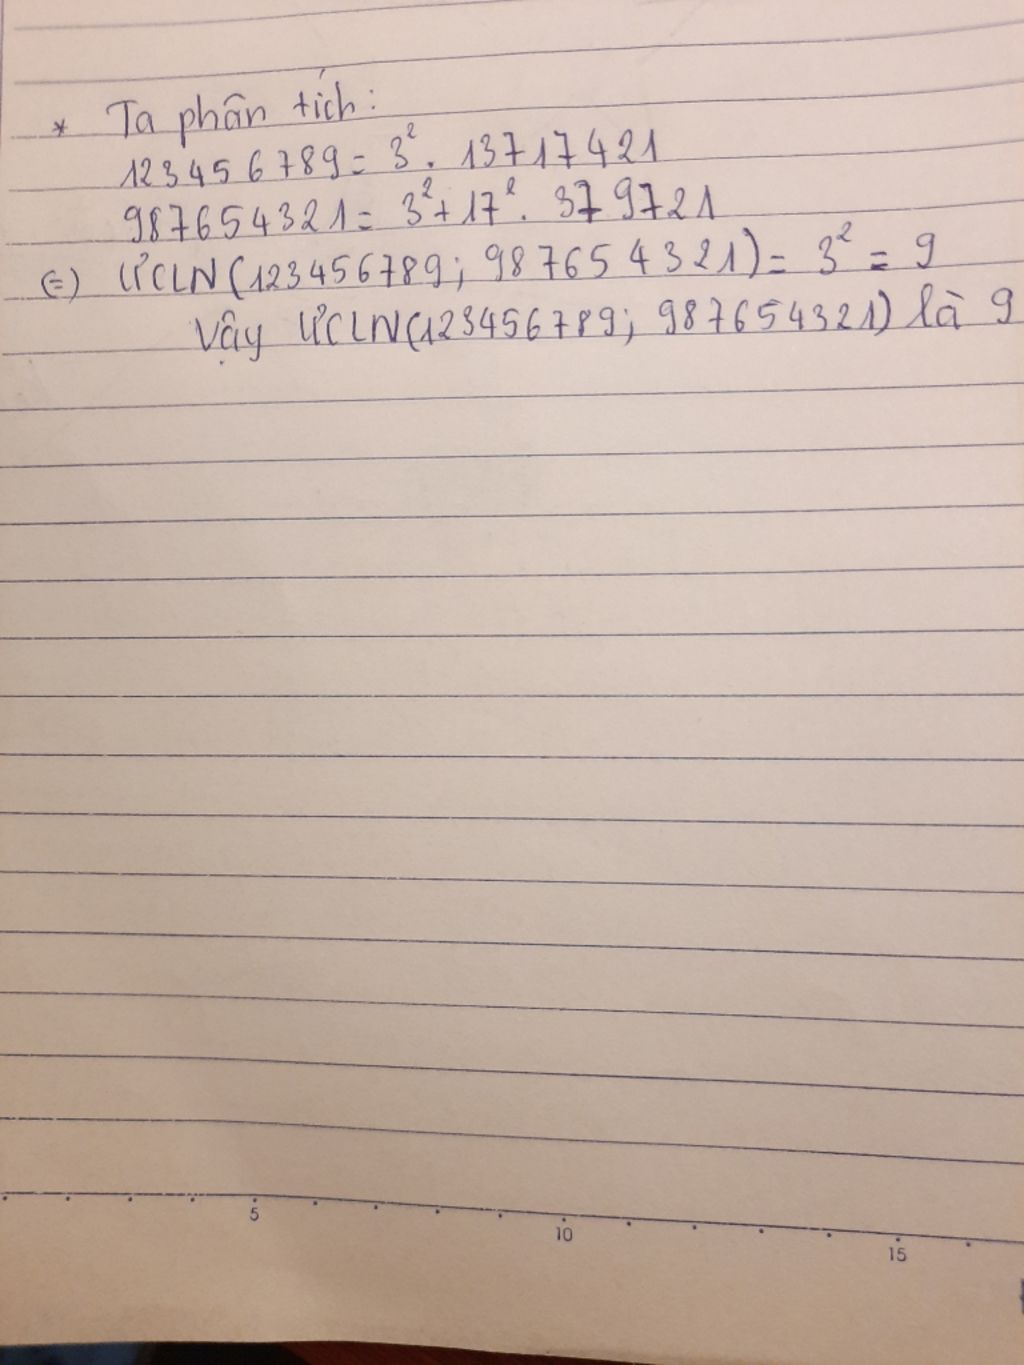 * Ta phân tích:
123456789 = 3². 13717421
987654321 = 3² + 17². 379721
(=) ƯCLN(123456789; 987654321) = 3² = 9
Vậy ƯCLN(123456789; 987654321) là 9
5 10 15